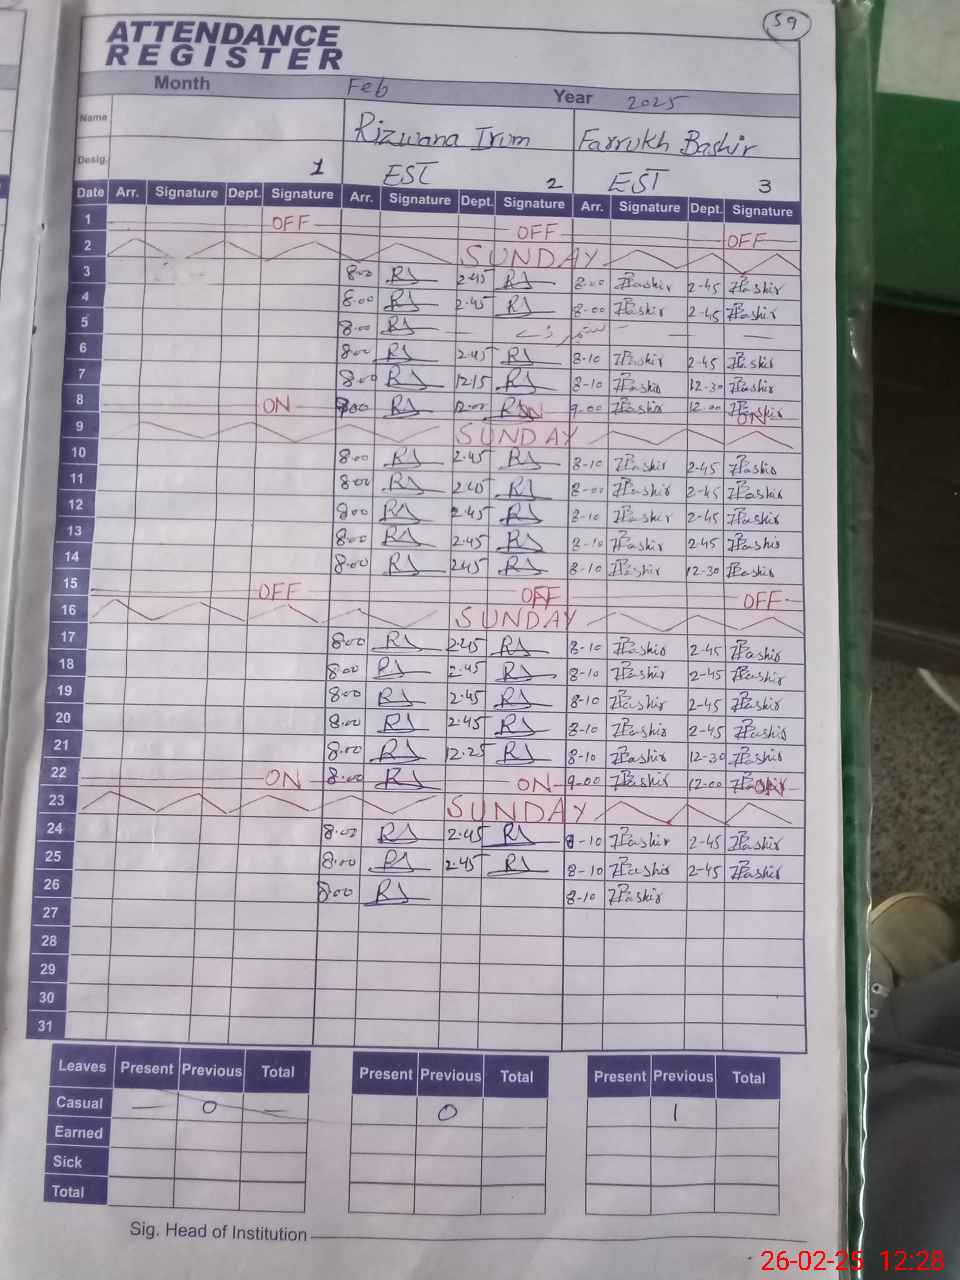 59
ATTENDANCE
REGISTER
Month Feb Year 2025
Name Rizwana Irum Farrukh Bashir
Desig. 1 EST 2 EST 3
Date Arr. Signature Dept. Signature Arr. Signature Dept. Signature Arr. Signature Dept. Signature
1 OFF OFF OFF
2 SUNDAY
3 8.00 RS 2.45 RS 8-00 FBashir 2-45 FBashir
4 8.00 RS 2.45 RS 8-00 FBashir 2-45 FBashir
5 8.00 RS
6 8.00 RS 2.45 RS 8-10 FBashir 2-45 FBashir
7 8.00 RS 12.15 RS 8-10 FBashir 12-30 FBashir
8 ON 8.00 RS 12.00 RS ON 9-00 FBashir 12-00 FBashir ON
9 SUNDAY
10 8.00 RS 2.45 RS 8-10 FBashir 2-45 FBashir
11 8.00 RS 2.45 RS 8-00 FBashir 2-45 FBashir
12 8.00 RS 2.45 RS 8-10 FBashir 2-45 FBashir
13 8.00 RS 2.45 RS 8-10 FBashir 2-45 FBashir
14 8.00 RS 2.45 RS 8-10 FBashir 12-30 FBashir
15 OFF OFF OFF
16 SUNDAY
17 8.00 RS 2.45 RS 8-10 FBashir 2-45 FBashir
18 8.00 RS 2.45 RS 8-10 FBashir 2-45 FBashir
19 8.00 RS 2.45 RS 8-10 FBashir 2-45 FBashir
20 8.00 RS 2.45 RS 8-10 FBashir 2-45 FBashir
21 8.00 RS 12.25 RS 8-10 FBashir 12-30 FBashir
22 ON 8.00 RS ON 9-00 FBashir 12-00 FBashir ON
23 SUNDAY
24 8.00 RS 2.45 RS 8-10 FBashir 2-45 FBashir
25 8.00 RS 2.45 RS 8-10 FBashir 2-45 FBashir
26 8.00 RS 8-10 FBashir
27
28
29
30
31
Leaves Present Previous Total Present Previous Total Present Previous Total
Casual — 0 — 0 1
Earned
Sick
Total
Sig. Head of Institution
26-02-25 12:28